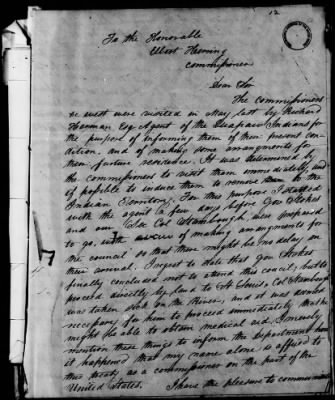 12
To the Honorable
Elbert Herring
Commissioner
Dear Sir
The commissioners
west were visited in May last by Richard
Hannon Esq Agent of the Quapaw Indians for
the purpose of informing them of their present con
dition, and of making some arrangments for
their further residence. It was determined by
the commissioners to visit them immediately, and
if posible to induce them to remove to the
Indian Territory. For this purpose I started
with the agent a few days before Gov Stokes
and our Sec Col Stambough, were prepared
to go, with a view of making arrangments for
the council so that there might be no delay on
their arrival. I regret to state that Gov Stokes
finally concluded not to attend this council, but to
proceed directly by land to St Louis, Col Stambough
was taken sick on the River, and it was deemed
necessary for him to proceed immediately that he
might be able to obtain medical aid. I merely
mention these things to inform the department how
it happened that my name alone is affixed to
this treaty as a commissioner on the part of the
United States. I have the pleasure to communicate